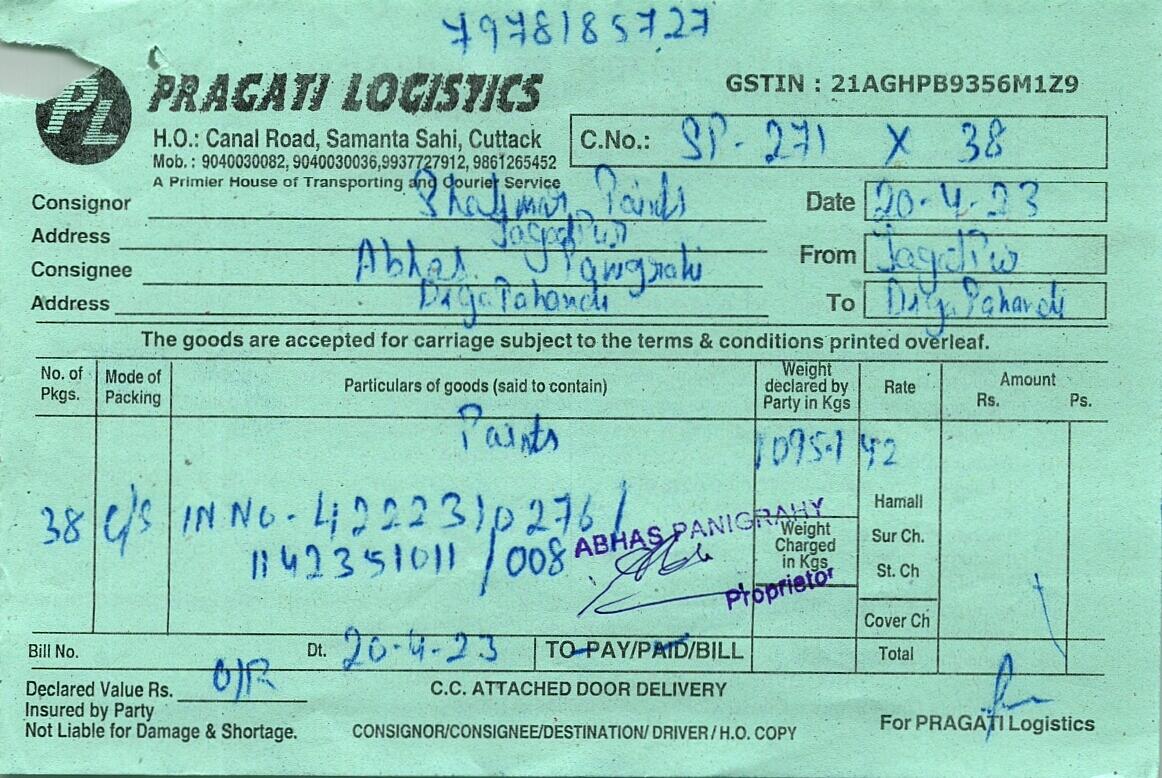 7978185727
PL PRAGATI LOGISTICS
GSTIN : 21AGHPB9356M1Z9
H.O.: Canal Road, Samanta Sahi, Cuttack
C.No.: SP-271 X 38
Mob. : 9040030082, 9040030036,9937727912, 9861265452
A Primier House of Transporting and Courier Service
Consignor Paints
Date 20-4-23
Address Jagatpur
From Jagatpur
Consignee Abhas Panigrahi
Address DigaPahandi
To DigaPahandi
The goods are accepted for carriage subject to the terms & conditions printed overleaf.
No. of Pkgs. Mode of Packing Particulars of goods (said to contain) Weight declared by Party in Kgs Rate Amount Rs. Ps.
Paints
1095-1
38 C/S IN NO - 422231p276/
1142351011/008
ABHAS PANIGRAHY
Proprietor
Weight Charged in Kgs
Hamall
Sur Ch.
St. Ch
Cover Ch
Total
Bill No. Dt. 20-4-23 TO-PAY/PAID/BILL
Declared Value Rs. O/R
C.C. ATTACHED DOOR DELIVERY
Insured by Party
Not Liable for Damage & Shortage.
CONSIGNOR/CONSIGNEE/DESTINATION/ DRIVER / H.O. COPY
For PRAGATI Logistics